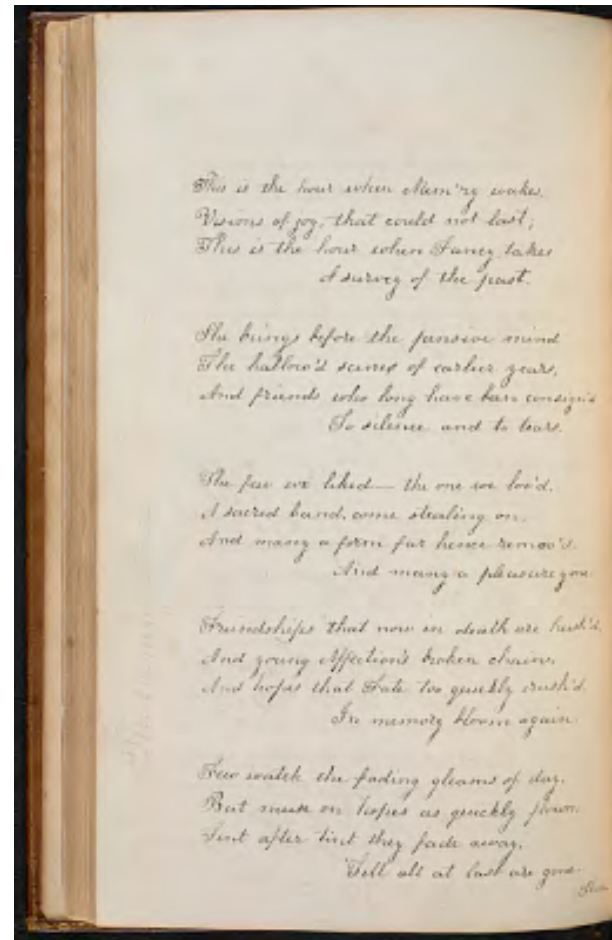 This is the hour when Mem'ry wakes
Visions of joy, that could not last;
This is the hour when Fancy takes
A survey of the past.
She brings before the pensive mind
The hallow'd scenes of earlier years,
And friends who long have been consign'd
To silence and to tears.
The few we liked — the one we lov'd,
A sacred band, come stealing on,
And many a form far hence remov'd.
And many a pleasure gone.
Friendships that now in death are hush'd,
And young Affection's broken chain,
And hopes that Fate too quickly crush'd
In memory bloom again.
Few watch the fading gleams of day,
But muse on hopes as quickly flown.
Tint after tint they fade away,
Till all at last are gone.